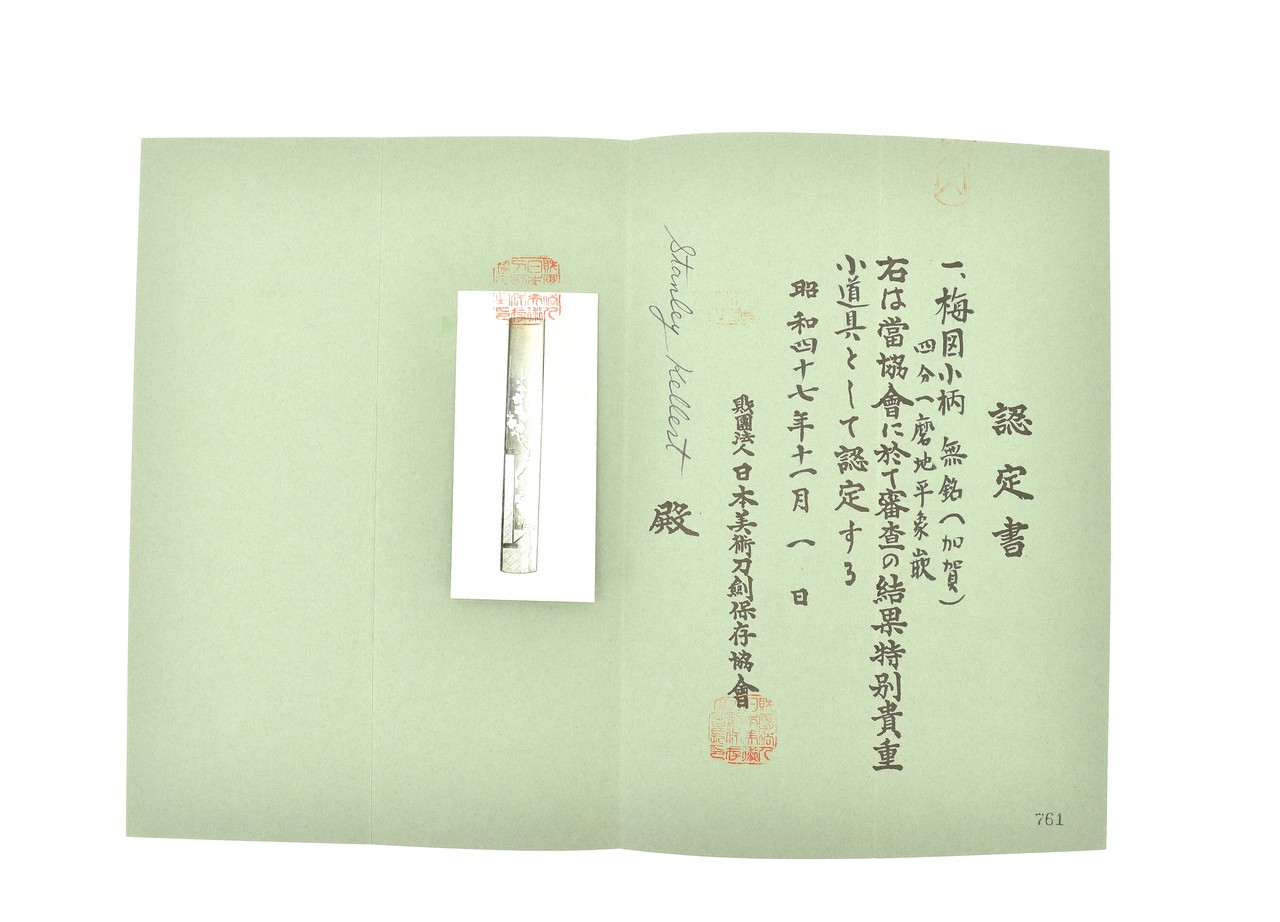 認定書
一、梅図小柄 無銘(加賀)
四分一磨地平象嵌
右は當協會に於て審査の結果特別貴重
小道具として認定する
昭和四十七年十一月一日
財團法人日本美術刀劍保存協會
Stanley Kellert 殿
761